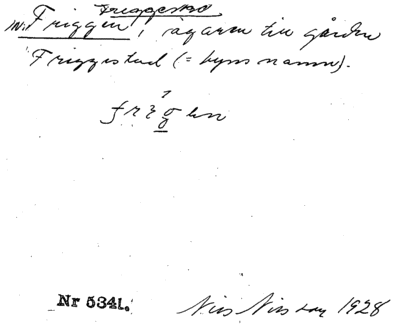 Friggestad
m. Friggen, ägaren till gården
Friggestad (= byns namn).
Nr 5341.
Nils Nilsson 1928